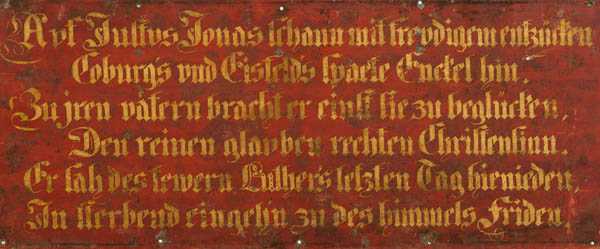 Avf Justvs Jonas schavn mit frevdigem entzücken
Coburgs vnd Eisfelds spaete Enckel hin.
Zu jren vätern bracht er einst sie zu beglücken,
Den reinen glavben rechten Christensinn.
Er sah des tewern Luthers letzten Tag hienieden,
In sterbend eingehn zu des himmels Friden.